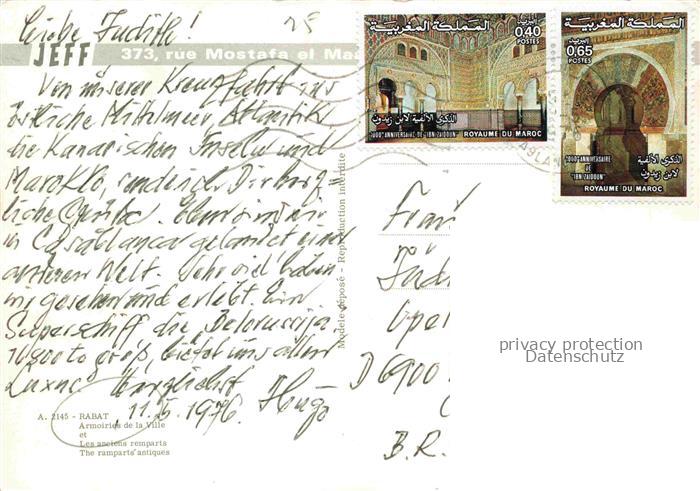 Liebe Judith!
JEFF
373, rue Mostafa el Maa
Von unserer Kreuzfahrt ins
östliche Mittelmeer, Atlantik
die Kanarischen Inseln und
Marokko, sende ich Dir herz-
liche Grüße. Eben sind wir
in Casablanca gelandet eine
anderen Welt. Sehr viel haben
wir gesehen und erlebt. Ein
Superschiff die "Belorussija"
16900 to groß, bietet uns allen
Luxus! Herzlichst Hugo
11.5.1976.
A. 2145 - RABAT
Armoiries de la Ville
et
Les anciens remparts
The ramparts'antiques
Modèle déposé - Reproduction interdite
المملكة المغربية
0,40
البريد
POSTES
الذكرى الألفية لابن زيدون
1000e ANNIVERSAIRE DE "IBN-ZAIDOUN"
ROYAUME DU MAROC
المملكة المغربية
البريد
0,65
POSTES
1000e ANNIVERSAIRE
DE
"IBN-ZAIDOUN"
الذكرى الألفية
لابن زيدون
ROYAUME DU MAROC
Frau
Jud
Ope
D 6900
B.R.
privacy protection
Datenschutz